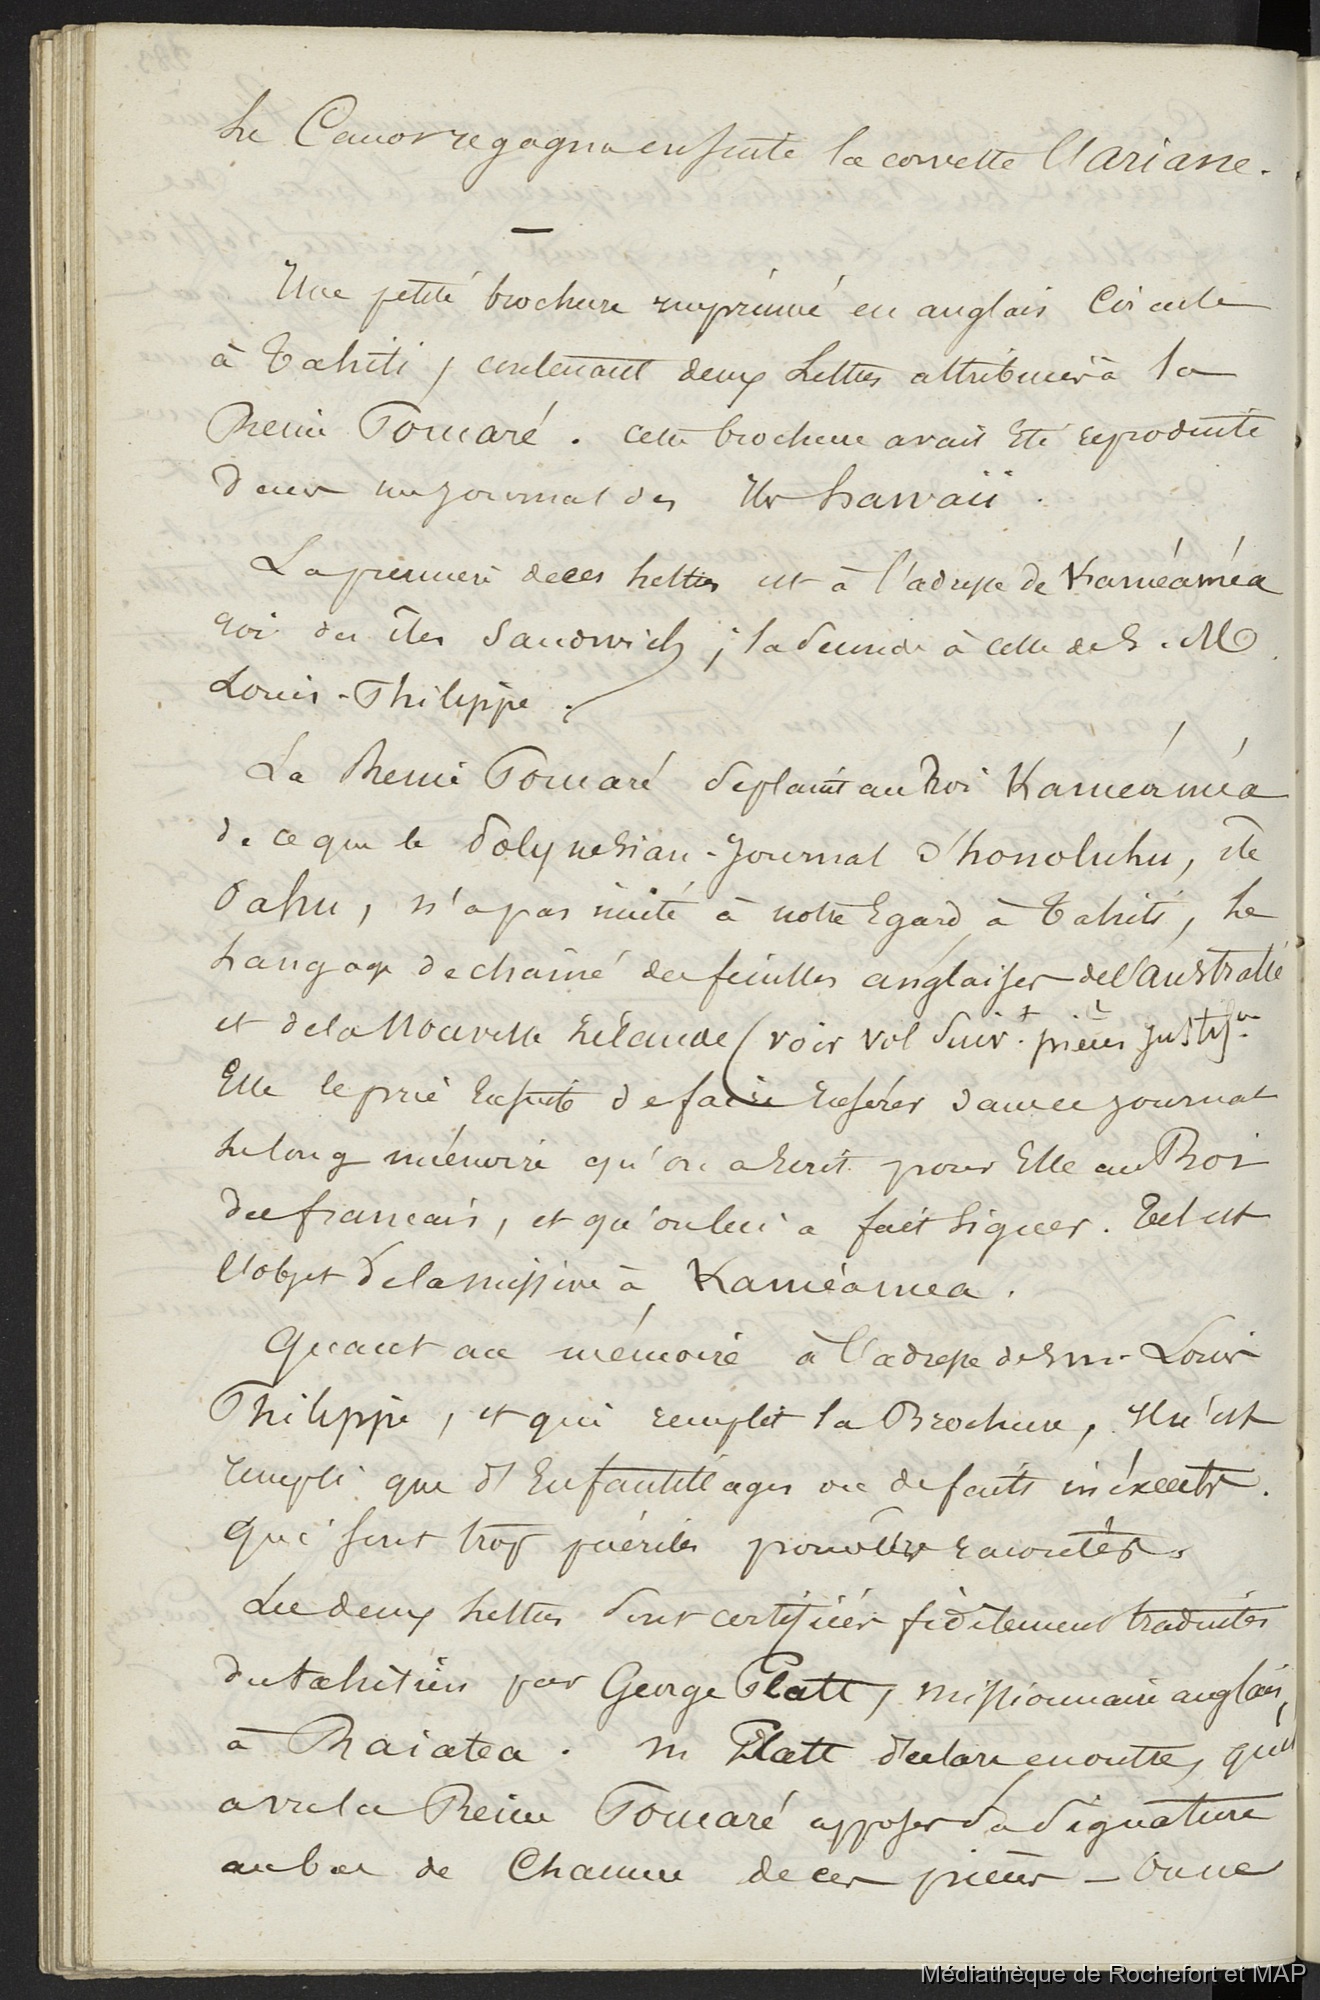 Le Canot regagna ensuite la corvette l'Ariane.
—
Une petite brochure imprimé en anglais Circule
à Tahiti, contenant deux Lettres attribuées à la
Reine Pomaré. cette brochure avait Eté reproduite
dans un journal des Iles hawaii.
La premiere de ces Lettres est à l'adresse de Kaméaméa
roi des îles Sandwich ; la Seconde à celle de S. M.
Louis-Philippe.
La Reine Pomaré Se plaint au Roi Kaméaméa
de ce que le Polynesian-Journal d'honoluhu, île
Oahu, n'a pas imité à notre Egard à Tahiti, Le
Langage dechaîné des feuilles anglaises de l'australie
et de la Nouvelle Zélande (voir vol Suiv.t pièces justif.ves
Elle le prie Ensuite de faire Insérer dans ce journal
Le long mémoire qu'on a Ecrit pour Elle au Roi
des français, et qu'on lui a fait Signer. Tel est
l'objet de la missive à Kaméamea.
Quant au mémoire à l'adresse de S. m. Louis
Philippe, et qui remplit la Brochure, Il n'est
rempli que d'Enfantillages ou de faits inéxacts.
qui sont trop puérils pour être racontés.
Les deux Lettres Sont certifiées fidèlement traduites
du tahitien par George Platt, missionnaire anglais,
à Raiatea. M Platt déclare en outre, qu'il
a vu la Reine Pomaré apposer Sa Signature
au bas de Chacune de ces pièces — On ne
Médiathèque de Rochefort et MAP